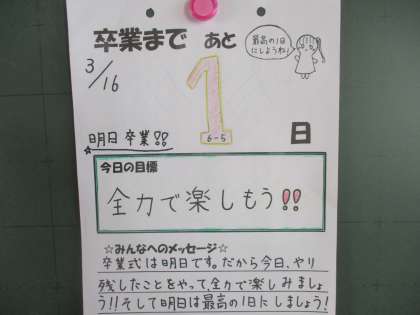 卒業まで あと
最高の1日
にしようね!
3/16
1
6-5
日
明日 卒業!!
今日の目標
全力で楽しもう!!
☆みんなへのメッセージ☆
卒業式は明日です。だから今日、やり
残したことをやって全力で楽しみましょ
う!!そして明日は最高の1日にしましょう!